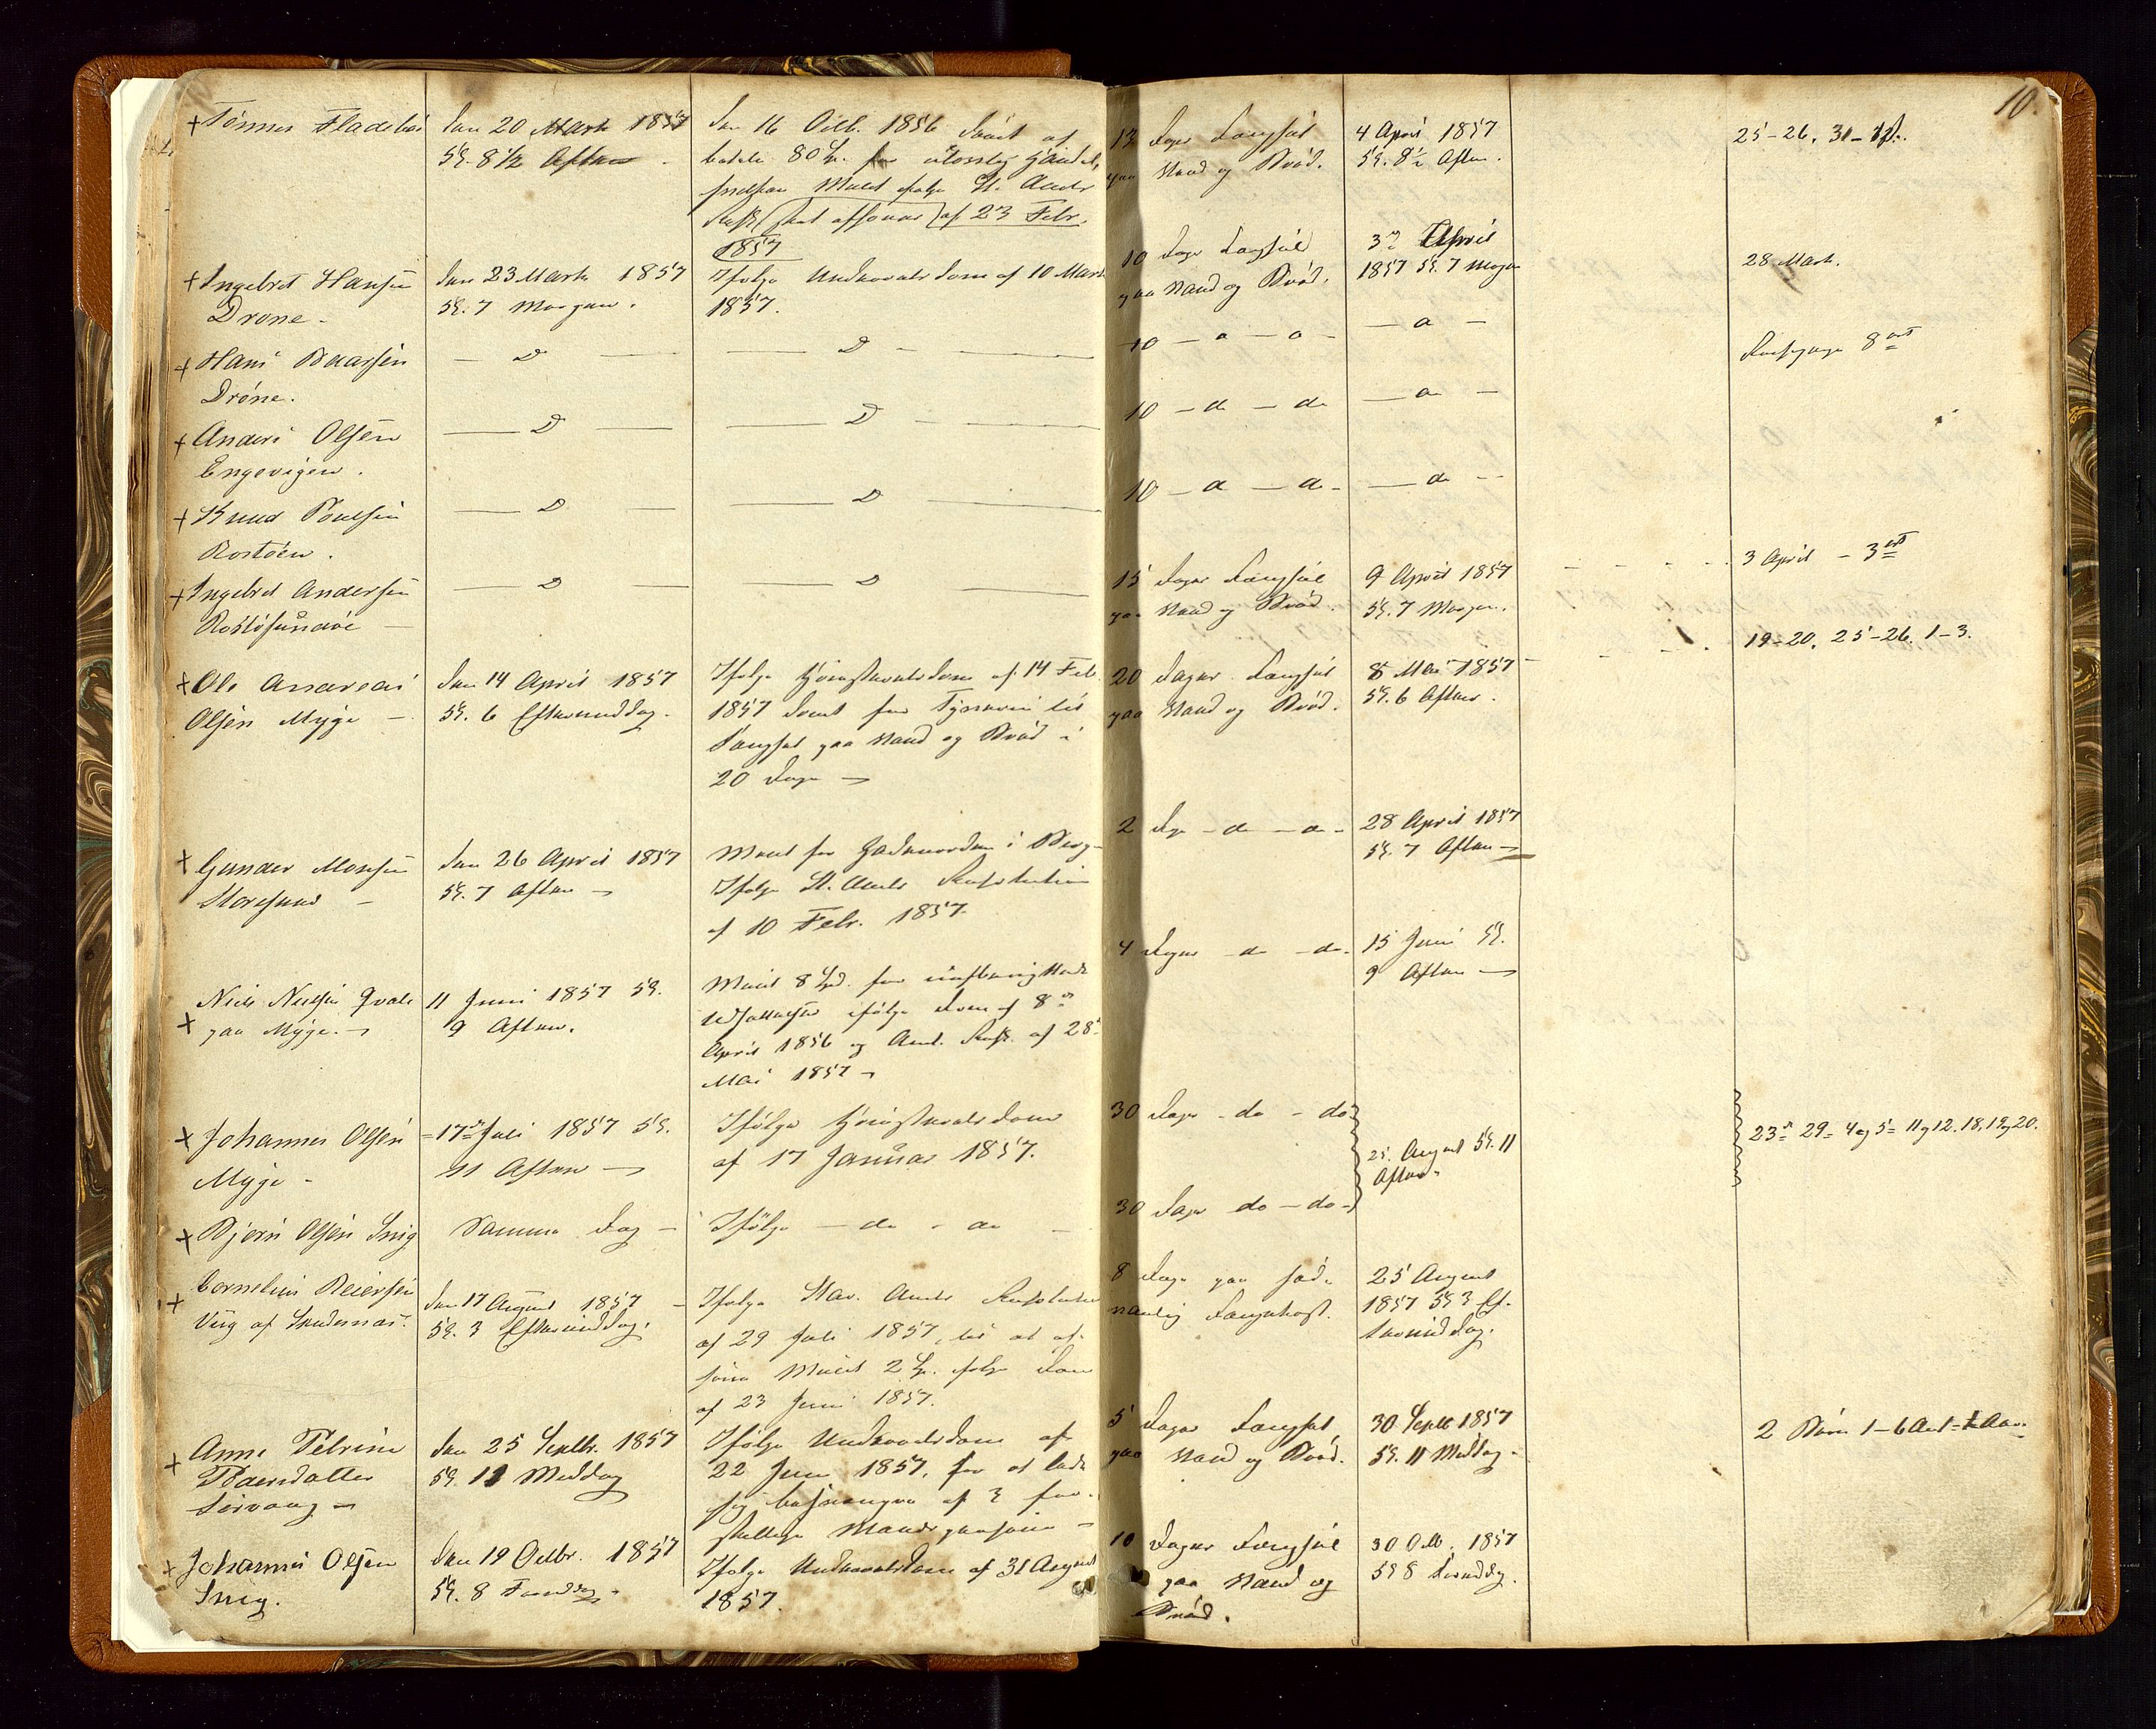 10.
+ Tönnes Fladebö
den 20 Marts 1857
Kl. 8 1/2 Aften
Den 16 Octb. 1856 dömt at
betale 80 for ulovlig Handel
af 23 Febr.
1857
Dages Fængsel
paa Vand og Bröd.
4 April 1857
Kl. 8 1/2 Aften.
25-26. 31-
+ Ingebret Hansen
Drone -
den 23 Marts 1857
Kl. 7 Morgen.
Ifølge Underretsdom af 10 Marts
1857.
10 Dage Fængsel
paa Vand og Bröd.
3 April
1857 Kl. 7 Morgen
28 Marts.
+ Hans Baarsen
Dröne.
— D —
— D —
10 — d — d —
— d —
8
+ Anders Olsen
Engevigen.
— D —
— D —
10 — do — do
— do —
+ Knud Poulsen
Rostöen.
— D —
— D —
10 — d — d -
— do —
+ Ingebret Andersen
Rostösundöe —
— D —
— D —
15 Dages Fængsel
paa Vand og Bröd.
9 April 1857
Kl. 7 Morgen.
3 April - 3
+ Ole Andreas
Olsen Myge —
den 14 April 1857
Kl. 6 Eftermiddag.
Ifølge Höiesteretsdom af 14 Feb.
1857 dömt for Tyverie til
Fængsel paa Vand og Bröd i
20 Dage
20 Dages Fængsel
paa Vand og Bröd.
8 Mai 1857
Kl. 6 Aften.
19-20. 25-26. 1-3.
+ Gunder Monsen
Storesund —
den 26 April 1857
Kl. 7 Aften
Mulct for Gadeuorden i Berg-
Ifølge St. Amts Resolution
af 10 Febr. 1857.
2 Dage - do - do -
28 April 1857
Kl. 7 Aften
+ Niels Nielsen Qvale
paa Myge.
11 Juni 1857 Kl.
9 Aften.
Mulct 8 Spd. for
ifølge Dom af 8
April 1856 og Amt. Resl. af 28
Mai 1857
4 Dages do - do.
15 Juni Kl.
9 Aften
+ Johannes Olsen
Myge -
17 Juli 1857 Kl.
11 Aften
Ifølge Höiesteretsdom
af 17 Januar 1857.
30 Dage - do - do
25. August Kl. 11
Aften
23 29 - 4 og 5 - 11 og 12. 18, 19 og 20.
+ Bjørn Olsen Snig
Samme Dag —
Ifølge — do - do —
30 Dage do - do -
+ Cornelius Reiersen
Viig af Skudenæs.
den 17 August 1857 -
Kl. 3 Eftermiddag.
Ifølge Stav. Amts Resolution
af 29 Juli 1857, til at af-
sone Mulct 2 Sp. ifølge Dom
af 23 Juni 1857.
8 Dage paa sæd-
vanlig Fangekost.
25 August
1857 Kl 3 Ef-
termiddag.
+ Anne Petrine
Baardsdatter
Sörvaag
den 25 Septbr. 1857
Kl. 11 Middag
Ifølge Underretsdom af
22 Juni 1857, for at lade
sig besvangre af 3 for-
skellige Mandspersoner
5 Dages Fængsel
paa Vand og Bröd.
30 Septb 1857
Kl. 11 Middag.
2 Börn 1 - 6 Aar 1 -
+ Johannes Olsen
Snig.
den 19 Octbr. 1857
Kl. 8 Formdag.
Ifølge Underretsdom af 31 August
1857.
10 Dages Fængsel
paa Vand og
Bröd.
30 Octb. 1857
Kl 8 Formdag.